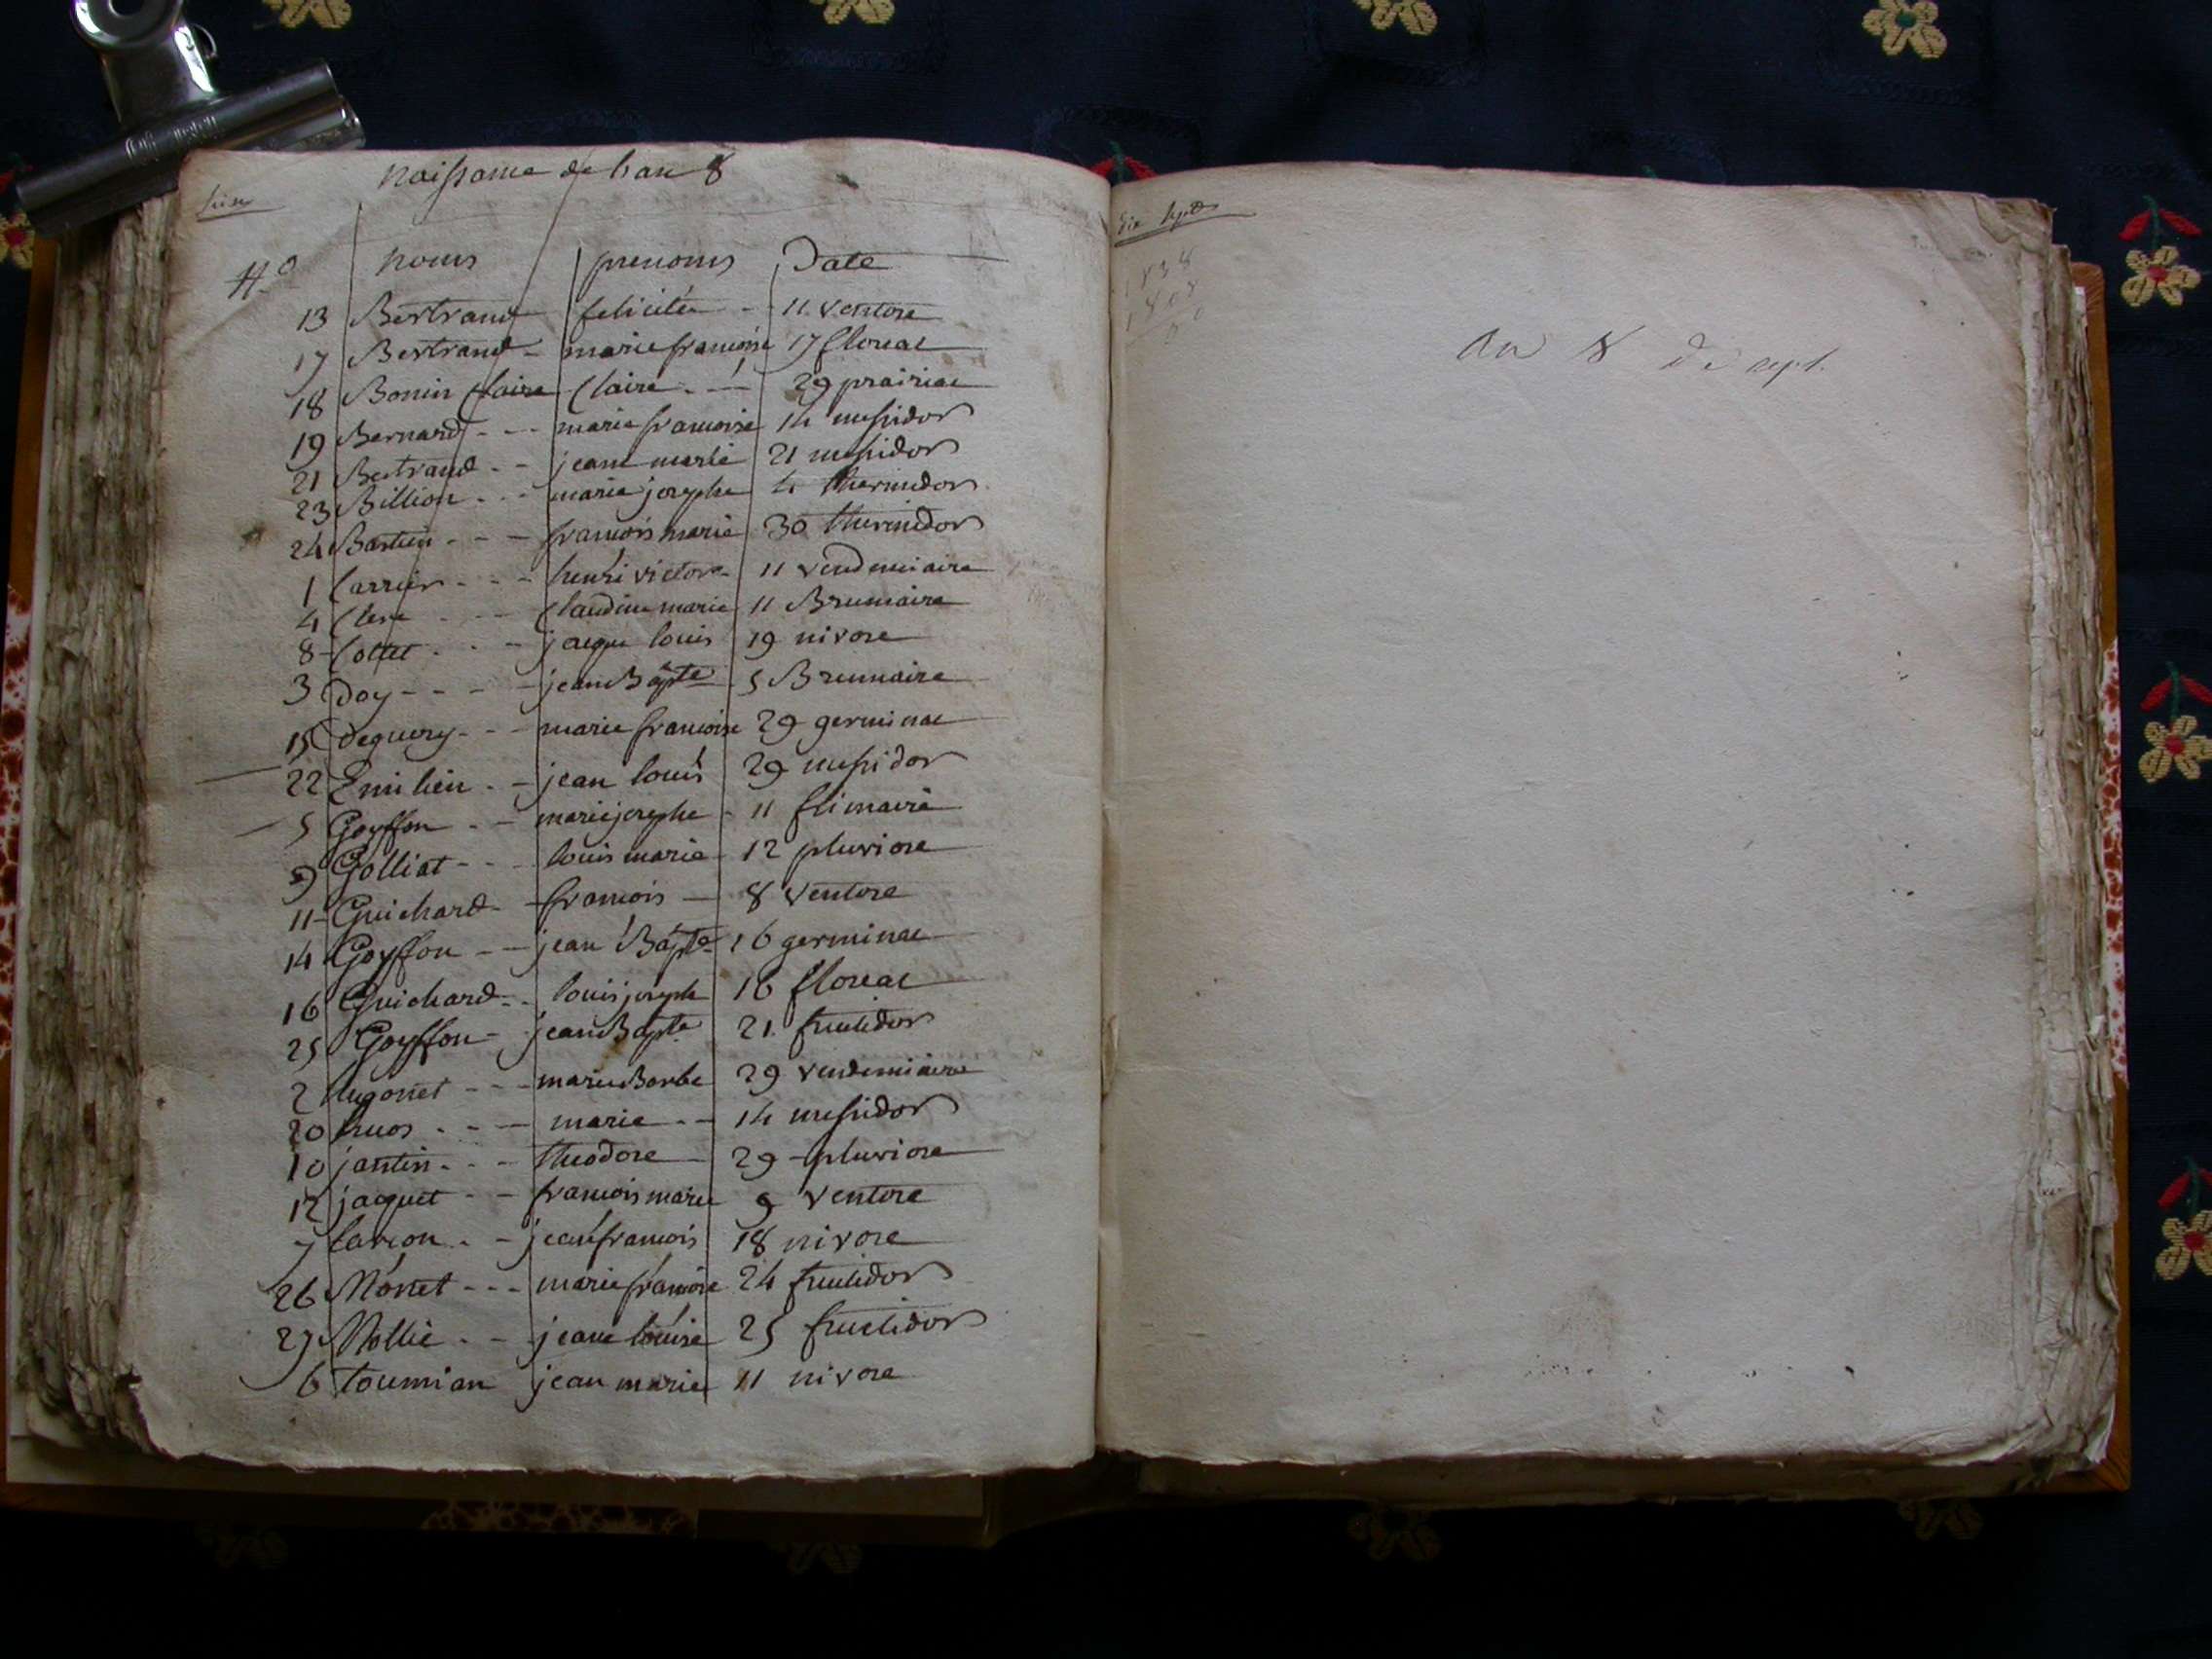 naissance de l'an 8
N.º noms prenoms Date
13 Bertrand felicitée - 11 ventose
17 Bertrand - marie francoise 17 floreal
18 Bonin Claire Claire - - 29 prairial
19 Bernard - - - marie francoise 14 messidor
21 Bertrand - - jeanne marie 21 messidor
23 Billion - - - marie josephe 4 thermidor
24 Bastien - - - francois marie 30 thermidor
1 Carrier - - - henri victor - 11 vendemiaire
4 Clere - - - Claudine marie 11 Brumaire
8 - Collet - - - jacque louis 19 nivose
3 Doy - - - - jean Bapte 5 Brumaire
15 Deguery - - - marie francoise 29 germinal
22 Emilien - - jean louis 29 messidor
5 Goyffon - - marie josephe - 11 frimaire
9 Golliat - - - louis marie - 12 pluviose
11 - Guichard - francois - 8 ventose
14 Goyffon - - jean Bapte 16 germinal
16 Guichard - - louis joseph 16 floreal
25 Goyffon - jean Bapte 21 fructidor
2 hugonet - - - marie Barbe 29 vendemiaire
20 - - - marie - - 14 messidor
10 jantin - - - theodore 29 pluviose
12 jacquet - - francois marie 9 ventose
7 - - jean francois 18 nivose
26 Monet - - - marie francoise 24 fructidor
27 Mollie - - jeane louise 25 fructidor
6 tournian jean marie 11 nivose
dix sept
An 8 de rep.